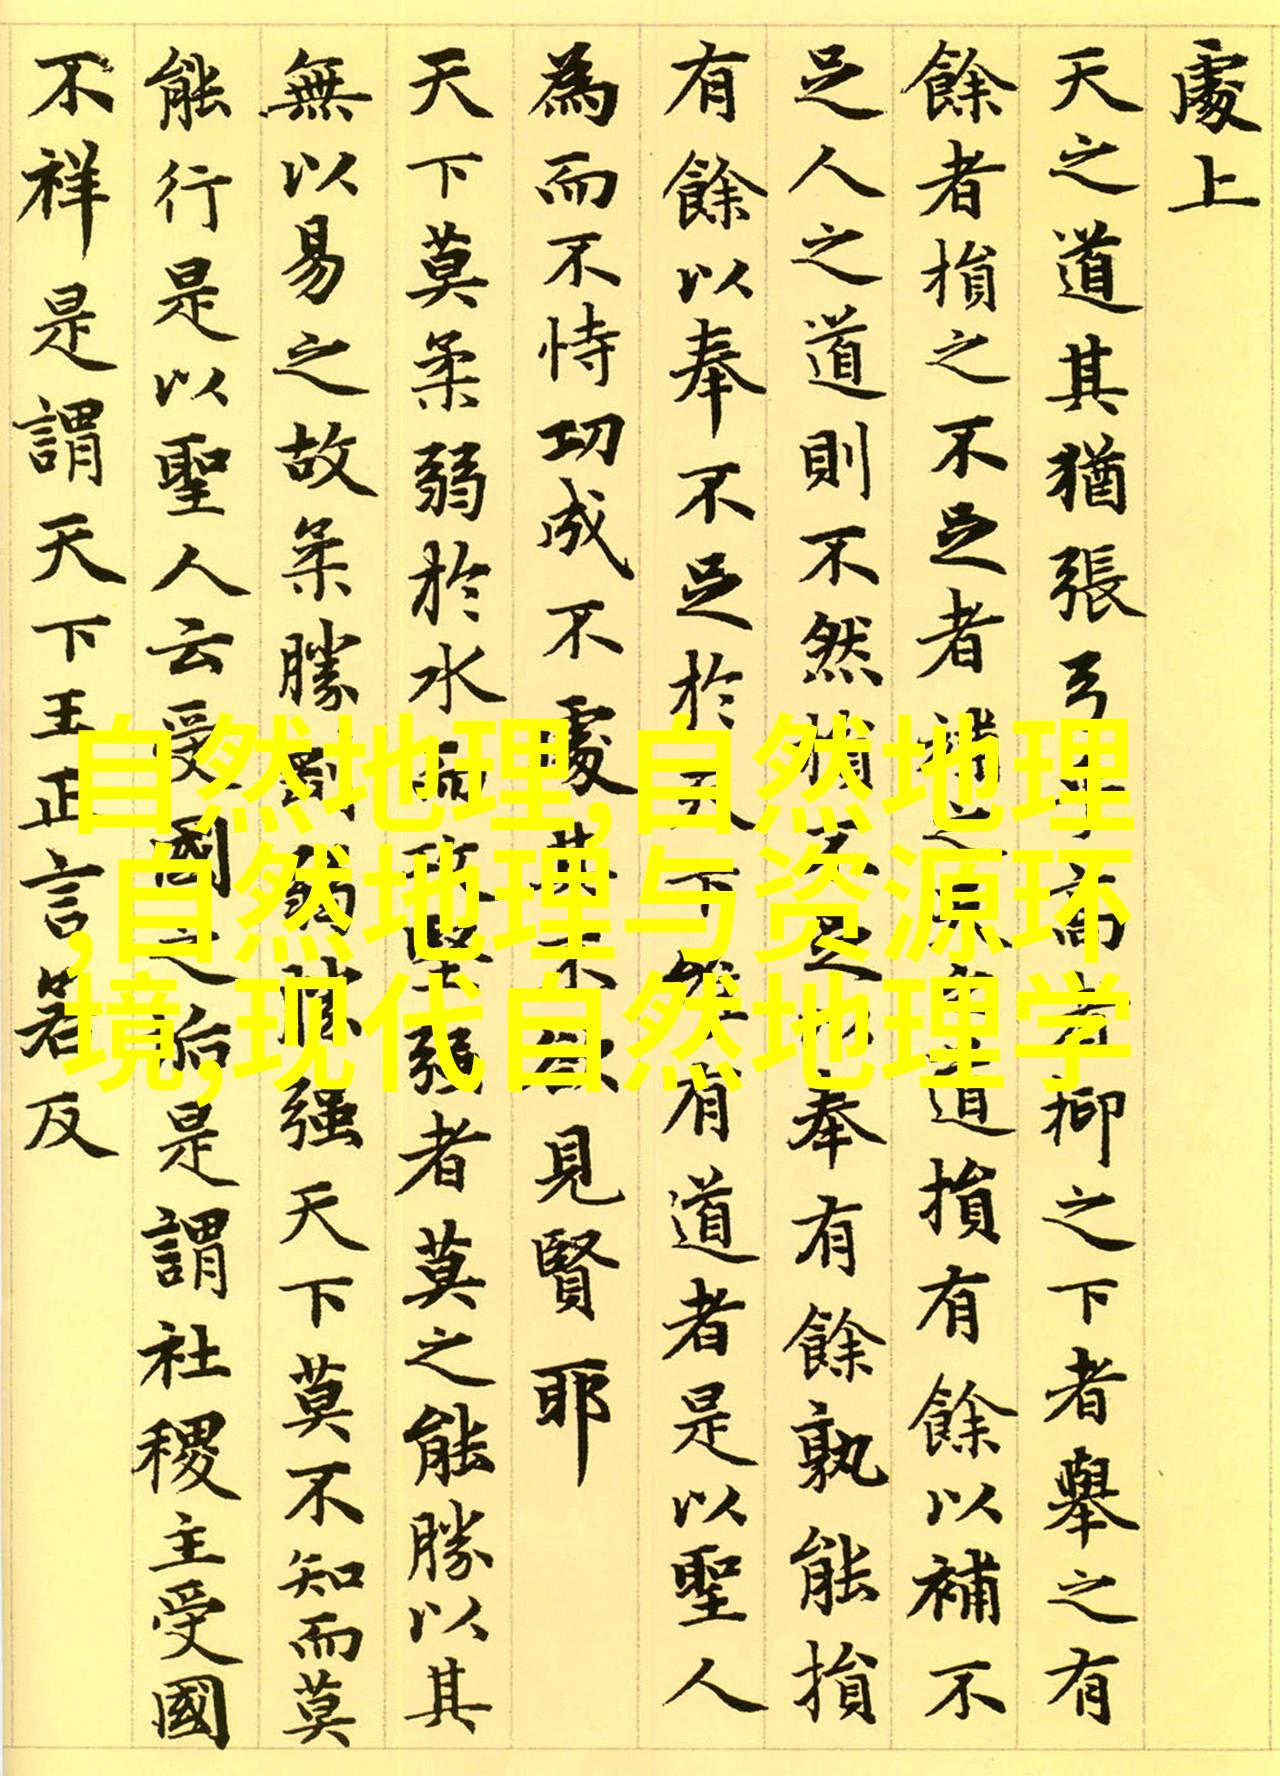 處上
天之道其猶張弓乎高者抑之下者舉之有
餘者損之不足者補之天之道損有餘以補不
足人之道則不然損不足以奉有餘孰能損
有餘以奉不足於天下唯有道者是以聖人
為而不恃功成不處其不欲見賢耶
天下莫柔弱於水而攻堅强者莫之能勝以其
無以易之故柔勝剛弱勝强天下莫不知而莫
能行是以聖人云受國之垢是謂社稷主受國
不祥是謂天下王正言若反
自然地理,自然地理
,自然地理与资源环
境,现代自然地理学